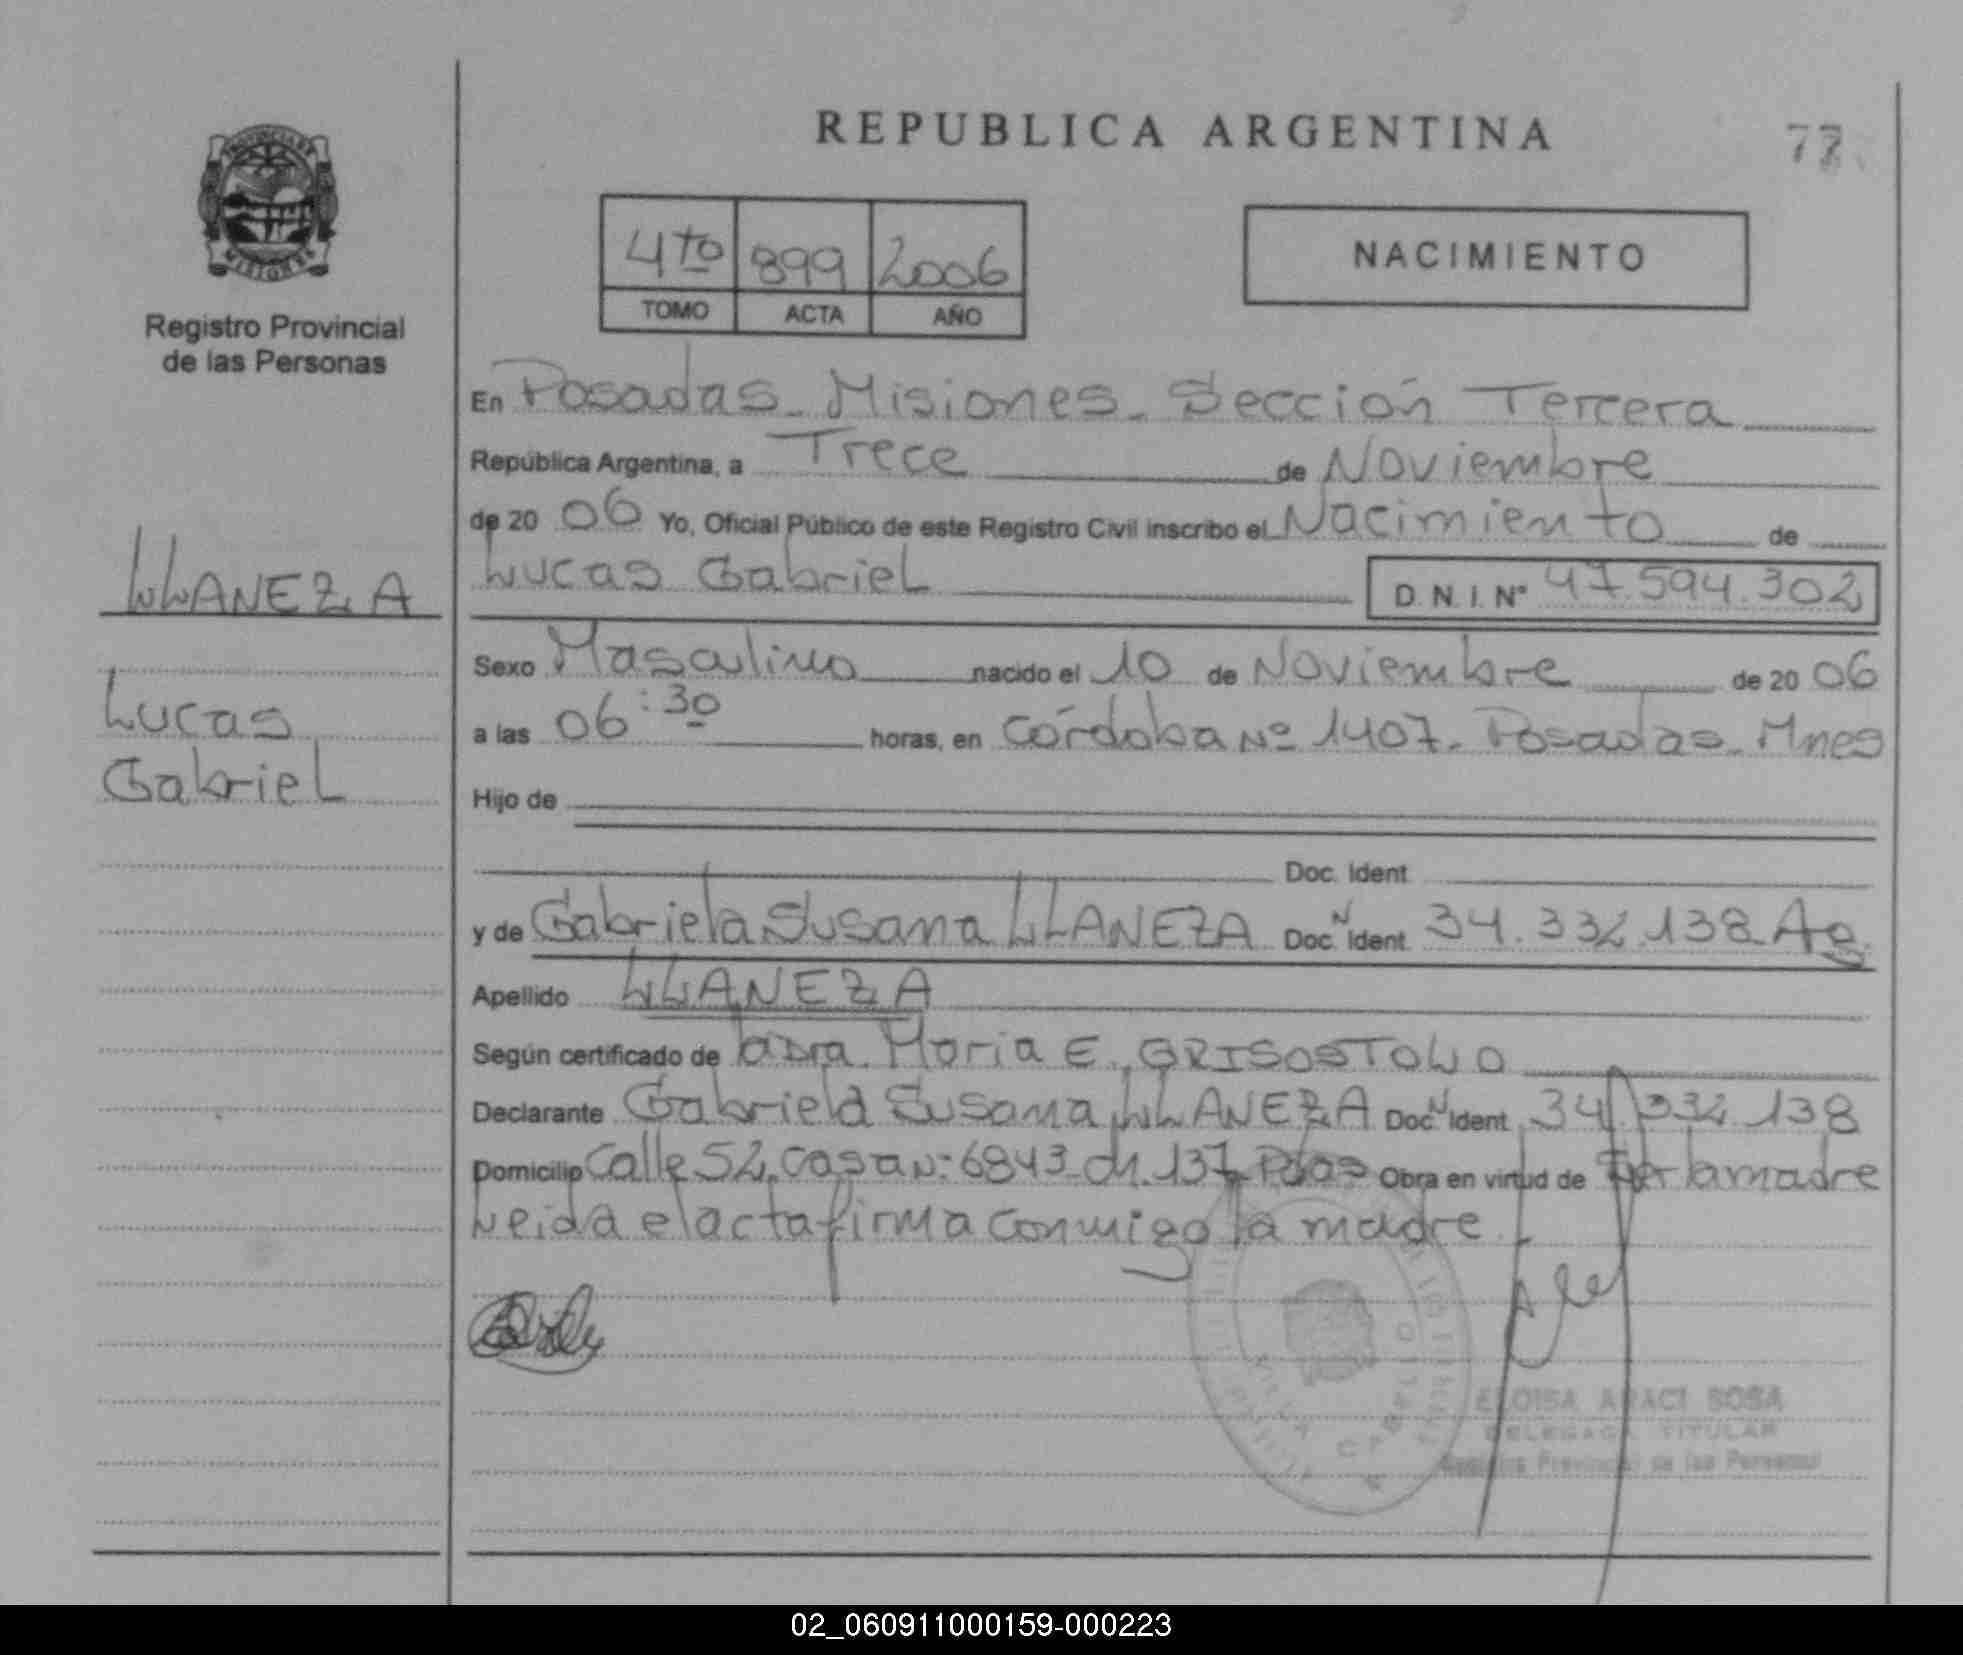 REPUBLICA ARGENTINA
77
PROVINCIA DE
MISIONES
Registro Provincial
de las Personas
4to 899 2006
TOMO ACTA AÑO
NACIMIENTO
En Posadas - Misiones - Sección Tercera
República Argentina, a Trece de Noviembre
de 20 06 Yo, Oficial Público de este Registro Civil inscribo el Nacimiento de
Lucas Gabriel D.N.I. Nº 47.594.302
LLANEZA
Lucas
Gabriel
Sexo Masculino nacido el 10 de Noviembre de 20 06
a las 06:30 horas, en Córdoba Nº 1407. Posadas. Mnes
Hijo de
Doc. Ident.
y de Gabriela Susana LLANEZA Doc. N Ident. 34.332.138 Ag
Apellido LLANEZA
Según certificado de la Dra. Maria E. GRISOSTOLO
Declarante Gabriela Susana LLANEZA Doc. N Ident. 34.332.138
Domicilio Calle 52, Casa N: 6843 - Ch. 137 Pdas Obra en virtud de Ser la madre
Leida el acta firma conmigo la madre.
ELOISA ARACI SOSA
DELEGADA TITULAR
Registro Provincial de las Personas
VILLA CABELLO
02_060911000159-000223